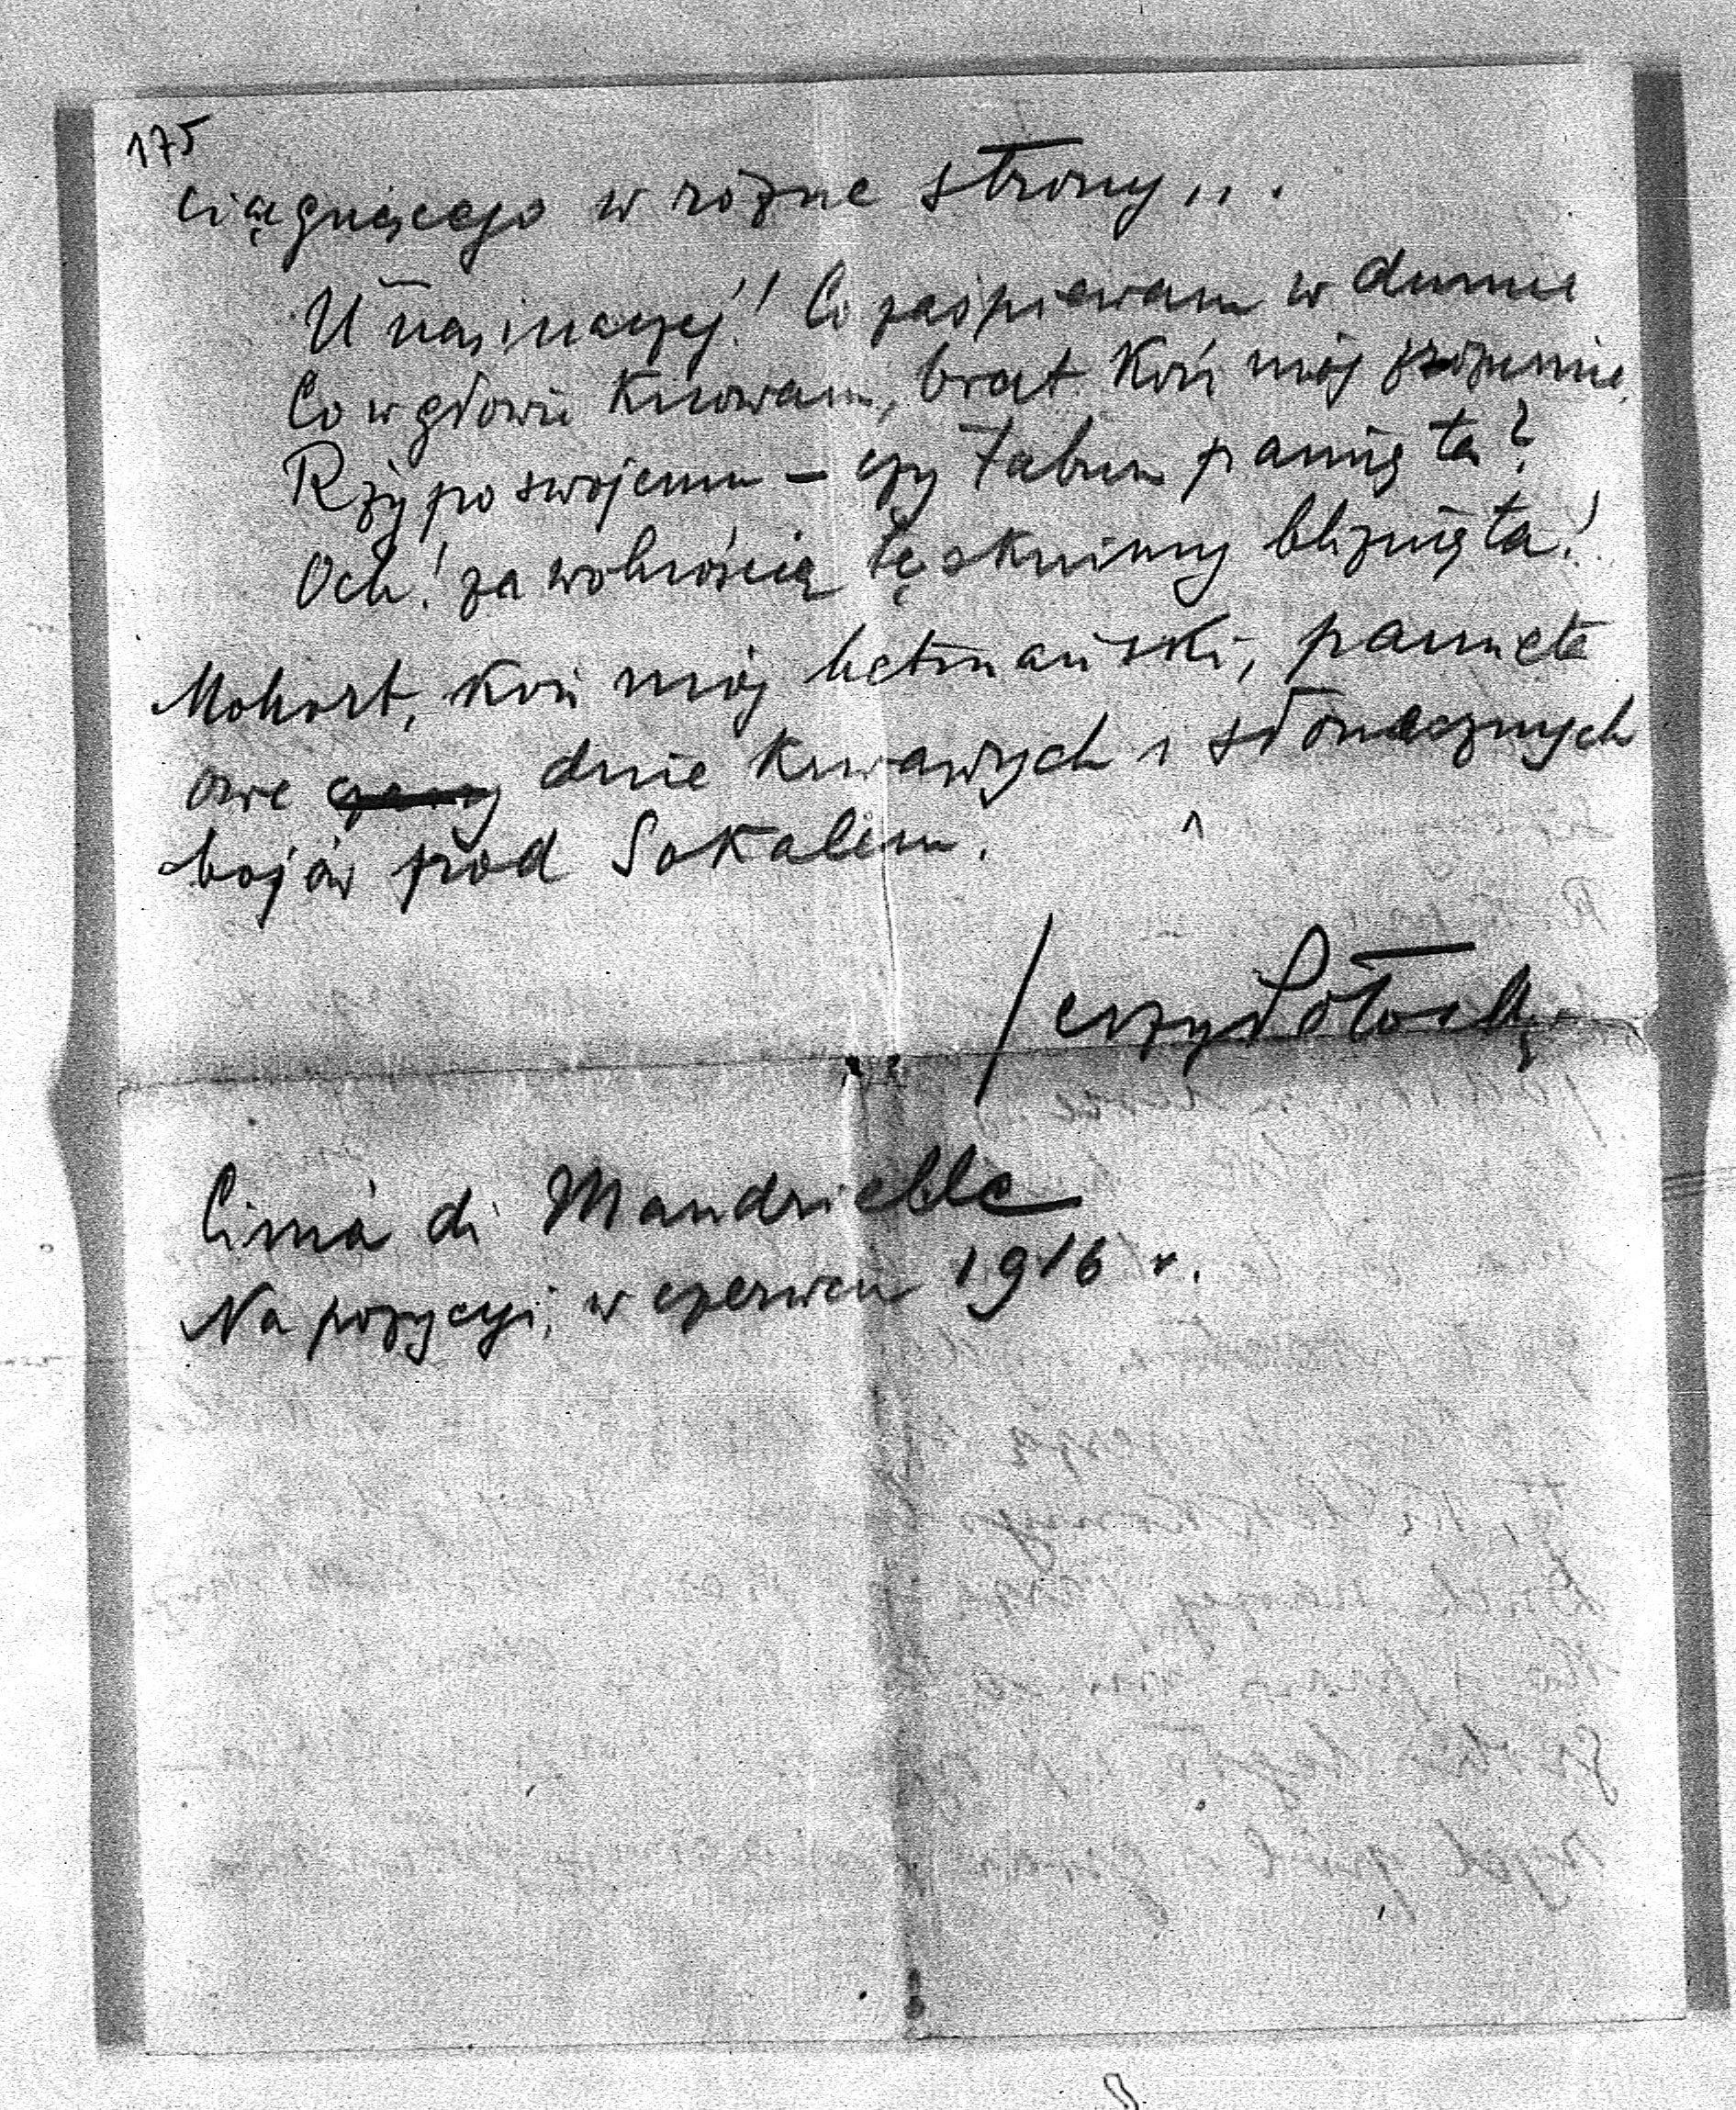 175
ciągnącego w różne strony...
U nas inaczej! Co zaśpiewam w dumie
Co w głowie knowam, brat koń mój zrozumie,
Rży po swojemu – czy tabun pamięta?
Och! za wolnością tęsknimy bliźnięta!
Mohort, koń mój hetmański, pamięta
owe czasy dnie krwawych i słonecznych
bojów pod Sokalem.
Jerzy Potocki
Cima di Mandrielle
Na pozycyi, w czerwcu 1916 r.